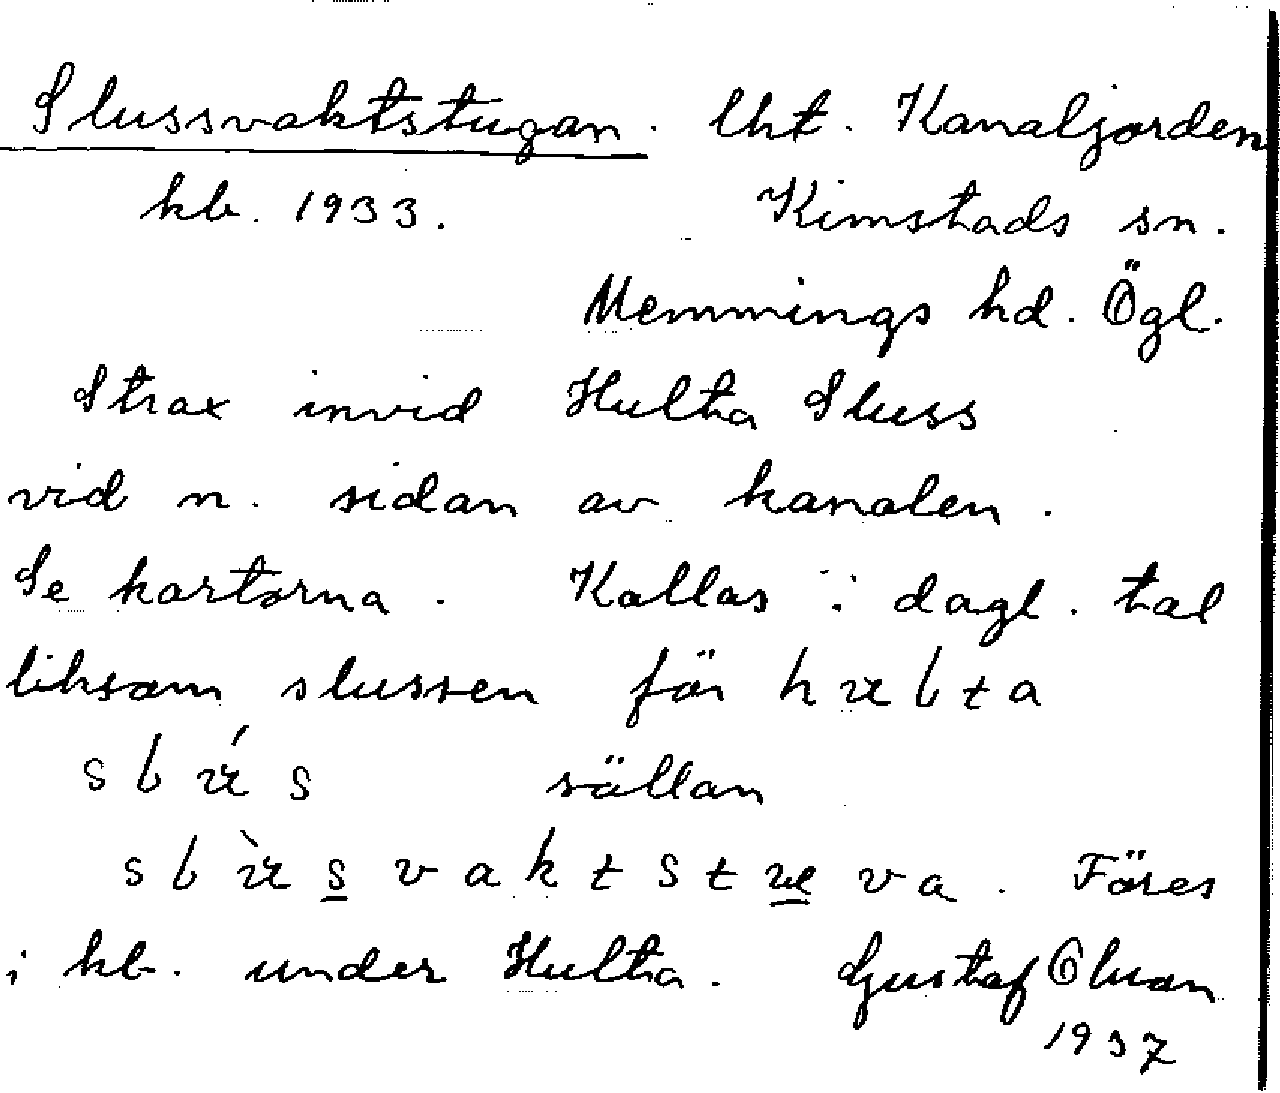 Slussvaktstugan. lht. Kanaljorden
kb. 1933. Kimstads sn.
Memmings hd. Ögl.
Strax invid Hulta Sluss
vid n. sidan av kanalen.
Se kartorna. Kallas i dagl. tal
liksom slussen för
sällan
Föres
i kb. under Hulta. Gustaf
1937